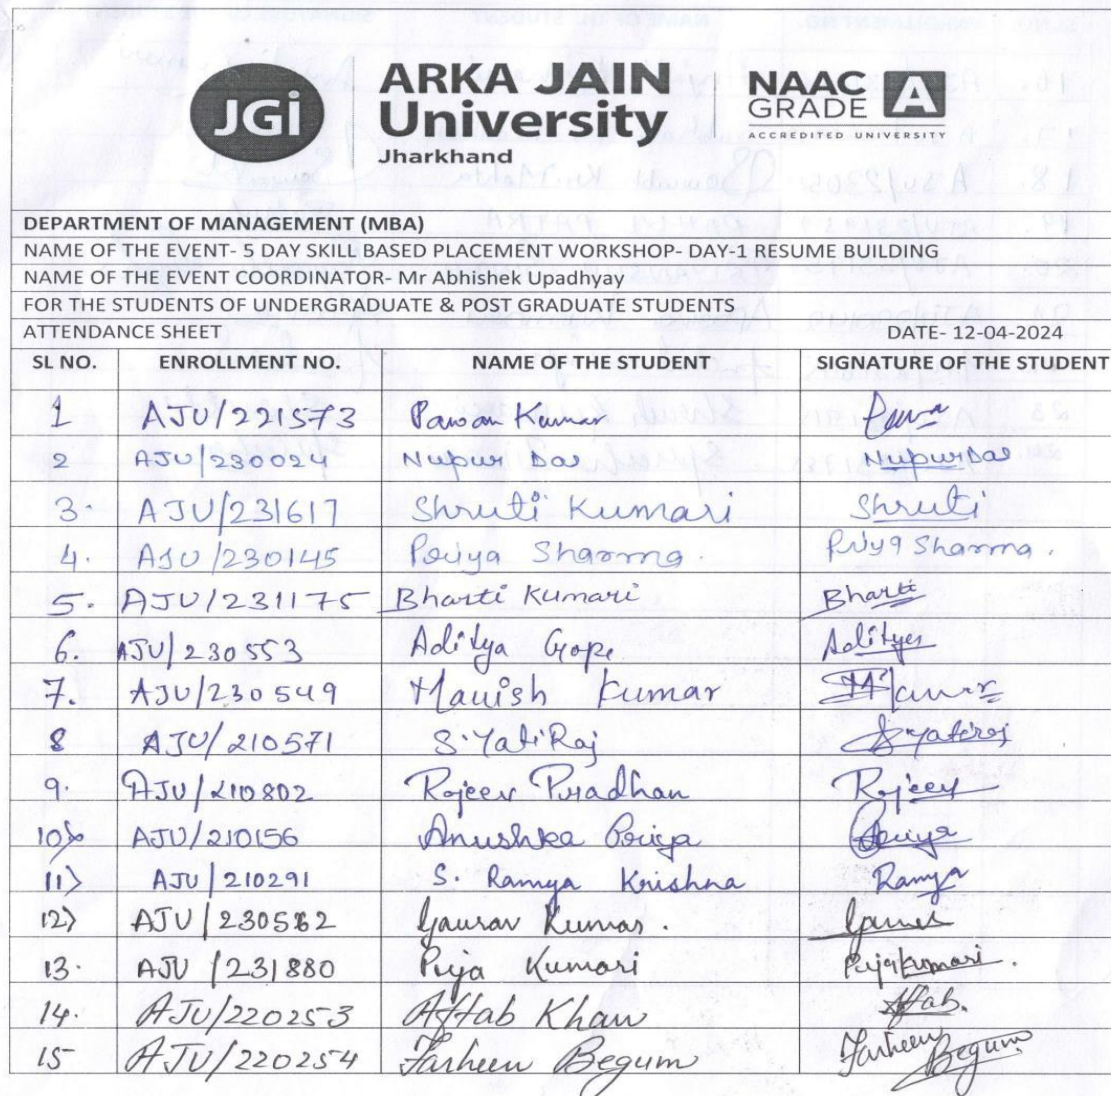 JGi
ARKA JAIN
University
Jharkhand
NAAC
GRADE A
ACCREDITED UNIVERSITY
DEPARTMENT OF MANAGEMENT (MBA)
NAME OF THE EVENT- 5 DAY SKILL BASED PLACEMENT WORKSHOP- DAY-1 RESUME BUILDING
NAME OF THE EVENT COORDINATOR- Mr Abhishek Upadhyay
FOR THE STUDENTS OF UNDERGRADUATE & POST GRADUATE STUDENTS
ATTENDANCE SHEET DATE -12-04-2024
SL NO. ENROLLMENT NO. NAME OF THE STUDENT SIGNATURE OF THE STUDENT
1 AJU/221573 Pawan Kumar
2 AJU/230024 Nupur Das Nupur Das
3. AJU/231617 Shruti Kumari Shruti
4. AJU/230145 Priya Sharma. Priya Sharma.
5. AJU/231175 Bharti Kumari Bharti
6. AJU/230553 Aditya Gope Aditya
7. AJU/230549 Manish Kumar
8 AJU/210571 S.Yati Raj S.Yatiraj
9. AJU/210802 Rajeev Pradhan Rajeev
10> AJU/210156 Anushka Priya Priya
11> AJU/210291 S. Ramya Krishna Ramya
12> AJU/230562 Gaurav Kumar.
13. AJU/231880 Puja Kumari Puja Kumari.
14. AJU/220253 Aftab Khan Aftab.
15 AJU/220254 Farheen Begum Farheen Begum